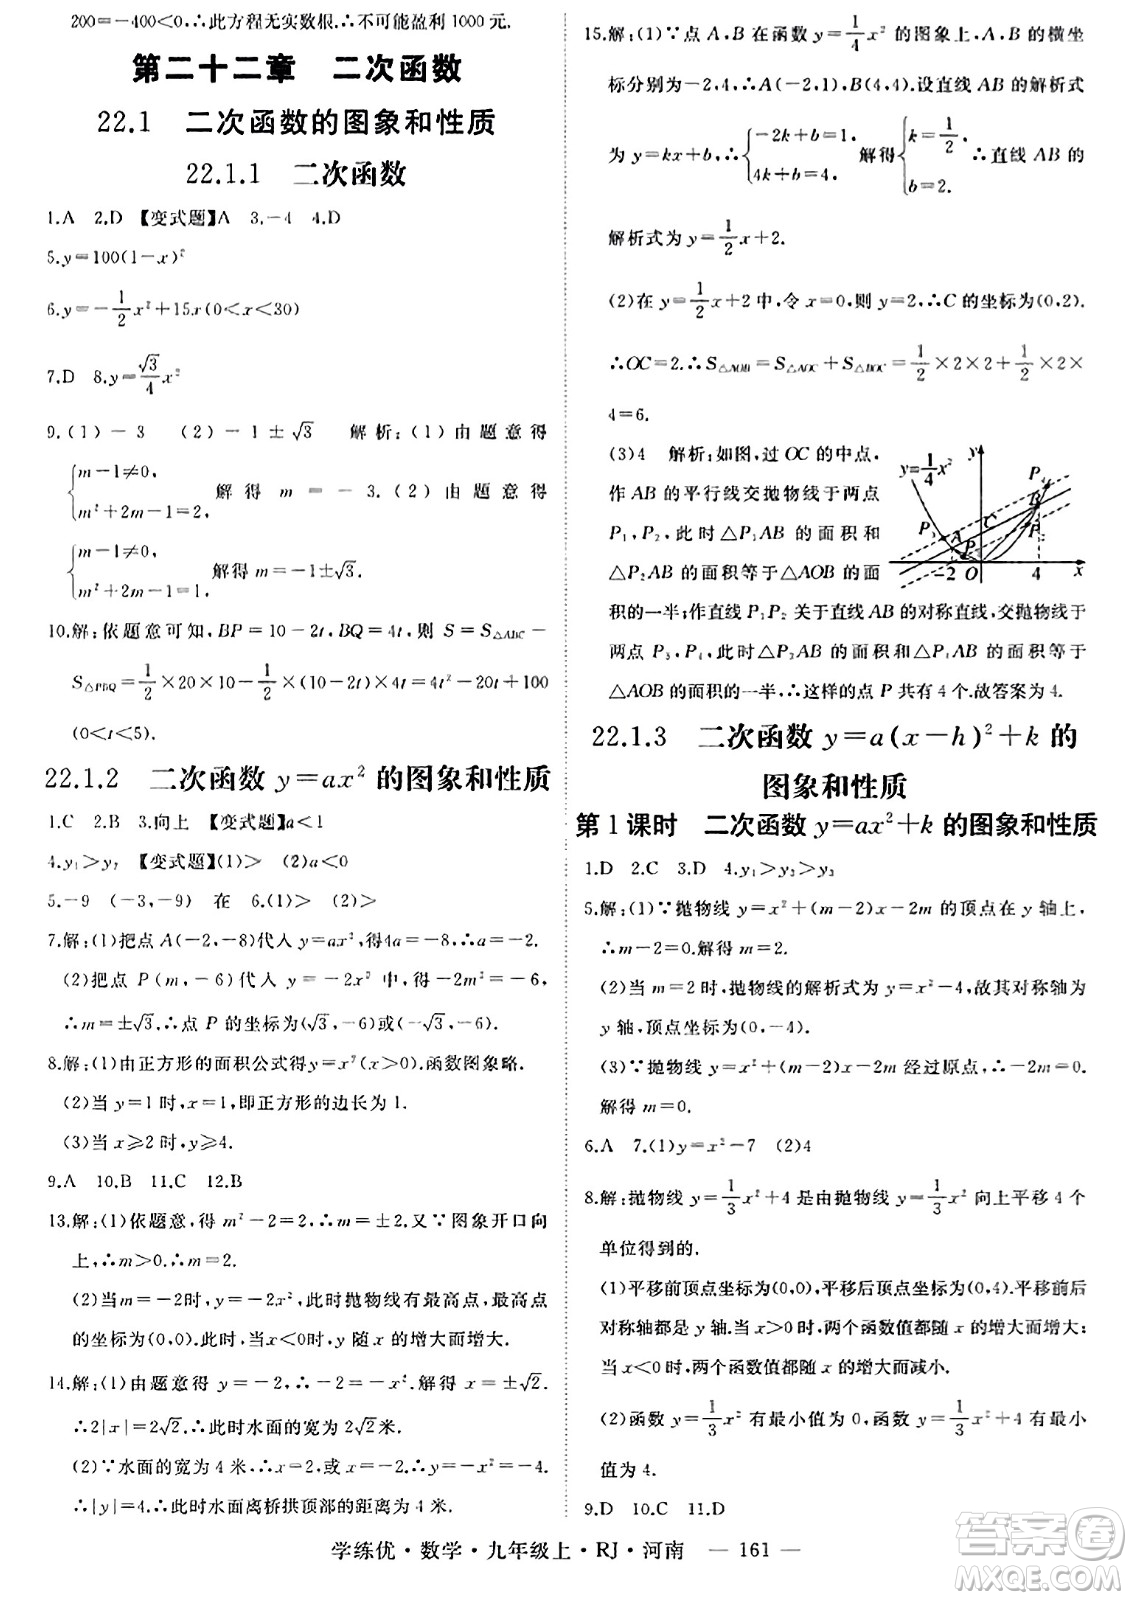 200=-400<0,∴此方程无实数根.∴不可能盈利1000元.
第二十二章 二次函数
22.1 二次函数的图象和性质
22.1.1 二次函数
1.A 2.D 【变式题】A 3.-4 4.D
5.y=100(1-x)²
6.y=-1/2x²+15x(0<x<30)
7.D 8.y=√3/4x²
9.(1)-3 (2)-1±√3 解析:(1)由题意得
{m-1≠0, m²+2m-1=2, 解得 m=-3.(2)由题意得
{m-1≠0, m²+2m-1=1. 解得m=-1±√3.
10.解:依题意可知,BP=10-2t,BQ=4t,则 S=S△ABC-
S△PBQ=1/2×20×10-1/2(10-2t)×4t=4t²-20t+100
(0<t<5).
22.1.2 二次函数 y=ax² 的图象和性质
1.C 2.B 3.向上 【变式题】a<1
4.y₁>y₂ 【变式题】(1)> (2)a<0
5.-9 (-3,-9) 在 6.(1)> (2)>
7.解:(1)把点 A(-2,-8)代入 y=ax²,得4a=-8,∴a=-2.
(2)把点 P(m,-6)代入 y=-2x² 中,得-2m²=-6,
∴m=±√3,∴点 P 的坐标为(√3,-6)或(-√3,-6).
8.解:(1)由正方形的面积公式得y=x²(x>0).函数图象略.
(2)当 y=1时,x=1,即正方形的边长为1.
(3)当 x≥2时,y≥4.
9.A 10.B 11.C 12.B
13.解:(1)依题意,得 m²-2=2,∴m=±2.又∵图象开口向
上,∴m>0.∴m=2.
(2)当m=-2时,y=-2x²,此时抛物线有最高点,最高点
的坐标为(0,0).当x<0时,y随x的增大而增大.
14.解:(1)由题意得 y=-2,∴-2=-x².解得 x=±√2.
∴2|x|=2√2.∴此时水面的宽为2√2米.
(2)∵水面的宽为4米,∴x=±2,∴y=-x²=-4.
∴|y|=4.∴此时水面离桥拱顶部的距离是4米.
15.解:(1)∵点 A,B 在函数 y=1/4x² 的图象上,A,B的横坐
标分别为-2,4,∴A(-2,1),B(4,4).设直线 AB 的解析式
为 y=kx+b,∴{-2k+b=1, 4k+b=4. 解得{k=1/2, b=2. ∴直线 AB 的
解析式为 y=1/2x+2.
(2)在 y=1/2x+2中,令 x=0,则y=2,∴C的坐标为(0,2).
∴OC=2.∴S△AOB=S△AOC+S△BOC=1/2×2×2+1/2×2×
4=6.
(3)4 解析:如图,过OC的中点,
作 AB 的平行线交抛物线于两点
P₁,P₂,此时△P₁AB 的面积和
△P₂AB 的面积等于△AOB的面
积的一半;作直线P₁P₂关于直线AB的对称直线,交抛物线于
两点 P₃,P₄,此时△P₃AB 的面积和△P₄AB的面积等于
△AOB的面积的一半,∴这样的点P共有4个.故答案为4.
y=1/4x² y P₄ B P₃ A C P₂ P₁ -2 O 4 x
22.1.3 二次函数 y=a(x-h)²+k 的
图象和性质
第1课时 二次函数 y=ax²+k 的图象和性质
1.D 2.C 3.D 4.y₁>y₂>y₃
5.解:(1)∵抛物线 y=x²+(m-2)x-2m 的顶点在 y 轴上,
∴m-2=0.解得 m=2.
(2)当 m=2时,抛物线的解析式为 y=x²-4,故其对称轴为
y 轴,顶点坐标为(0,-4).
(3)∵抛物线 y=x²+(m-2)x-2m 经过原点,∴-2m=0.
解得 m=0.
6.A 7.(1)y=x²-7 (2)4
8.解:抛物线 y=1/3x²+4是由抛物线 y=1/3x² 向上平移4个
单位得到的.
(1)平移前顶点坐标为(0,0),平移后顶点坐标为(0,4).平移前后
对称轴都是 y 轴.当x>0时,两个函数值都随x的增大而增大;
当x<0时,两个函数值都随x的增大而减小.
(2)函数 y=1/3x² 有最小值为0,函数 y=1/3x²+4有最小
值为4.
9.D 10.C 11.D
学练优·数学·九年级上·RJ·河南 — 161 —
答案圈
MXQE.COM